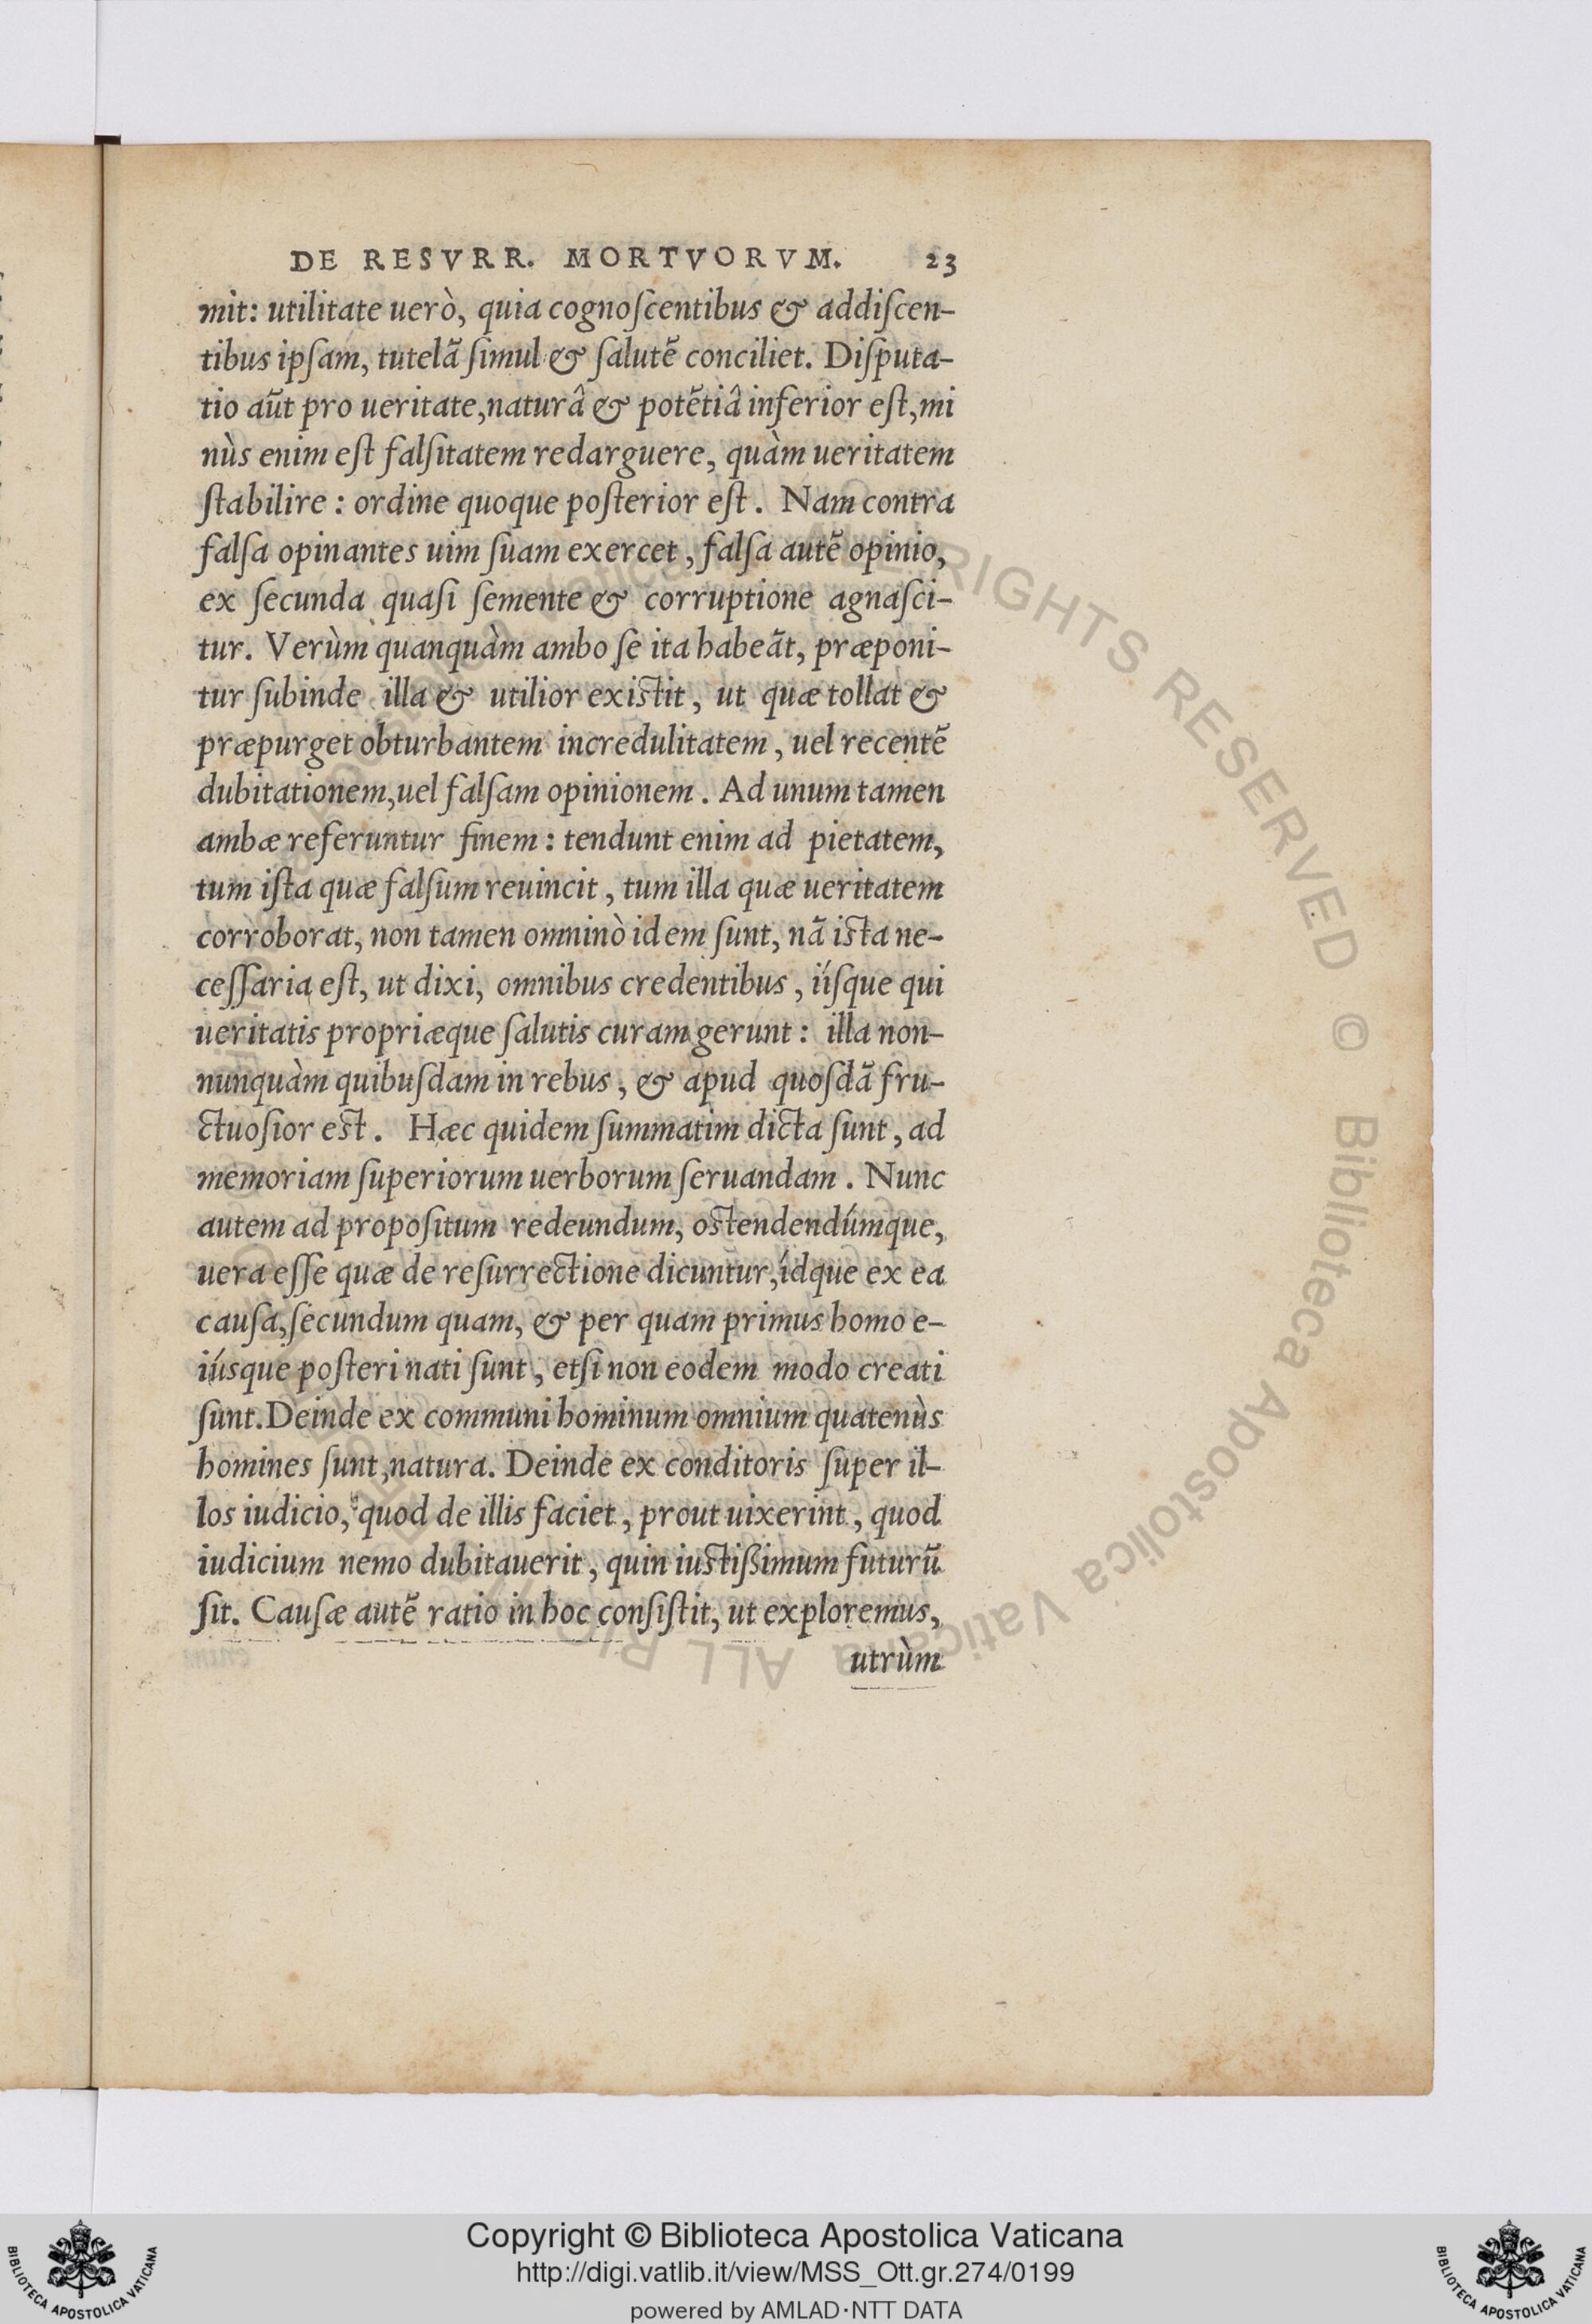 DE RESVRR. MORTVORVM. 23
mit: utilitate uerò, quia cognoſcentibus & addiſcen-
tibus ipſam, tutelā ſimul & ſalutē conciliet. Diſputa-
tio aūt pro ueritate,naturâ & potētiâ inferior eſt,mi
nùs enim eſt falſitatem redarguere, quàm ueritatem
ſtabilire : ordine quoque poſterior eſt. Nam contra
falſa opinantes uim ſuam exercet, falſa autē opinio,
ex ſecunda quaſi ſemente & corruptione agnaſci-
tur. Verùm quanquàm ambo ſe ita habeāt, præponi-
tur ſubinde illa & utilior existit, ut quæ tollat &
præpurget obturbantem incredulitatem, uel recentē
dubitationem,uel falſam opinionem. Ad unum tamen
ambæ referuntur finem : tendunt enim ad pietatem,
tum iſta quæ falſum reuincit, tum illa quæ ueritatem
corroborat, non tamen omninò idem ſunt, nā ista ne-
ceſſaria eſt, ut dixi, omnibus credentibus, iíſque qui
ueritatis propriæque ſalutis curam gerunt : illa non-
nunquàm quibuſdam in rebus, & apud quoſdā fru-
ctuoſior est. Hæc quidem ſummatim dicta ſunt, ad
memoriam ſuperiorum uerborum ſeruandam. Nunc
autem ad propoſitum redeundum, ostendendúmque,
uera eſſe quæ de reſurrectione dicuntur,ídque ex ea
cauſa,ſecundum quam, & per quam primus homo e-
iúsque poſteri nati ſunt, etſi non eodem modo creati
ſunt.Deinde ex communi hominum omnium quatenùs
homines ſunt,natura. Deinde ex conditoris ſuper il-
los iudicio, quod de illis faciet, prout uixerint, quod
iudicium nemo dubitauerit, quin iustißimum futurū
ſit. Cauſæ autē ratio in hoc conſiſtit, ut exploremus,
utrùm
ALL RIGHTS RESERVED © Biblioteca Apostolica Vaticana
Copyright © Biblioteca Apostolica Vaticana
http://digi.vatlib.it/view/MSS_Ott.gr.274/0199
powered by AMLAD·NTT DATA
BIBLIOTECA APOSTOLICA VATICANA
BIBLIOTECA APOSTOLICA VATICANA